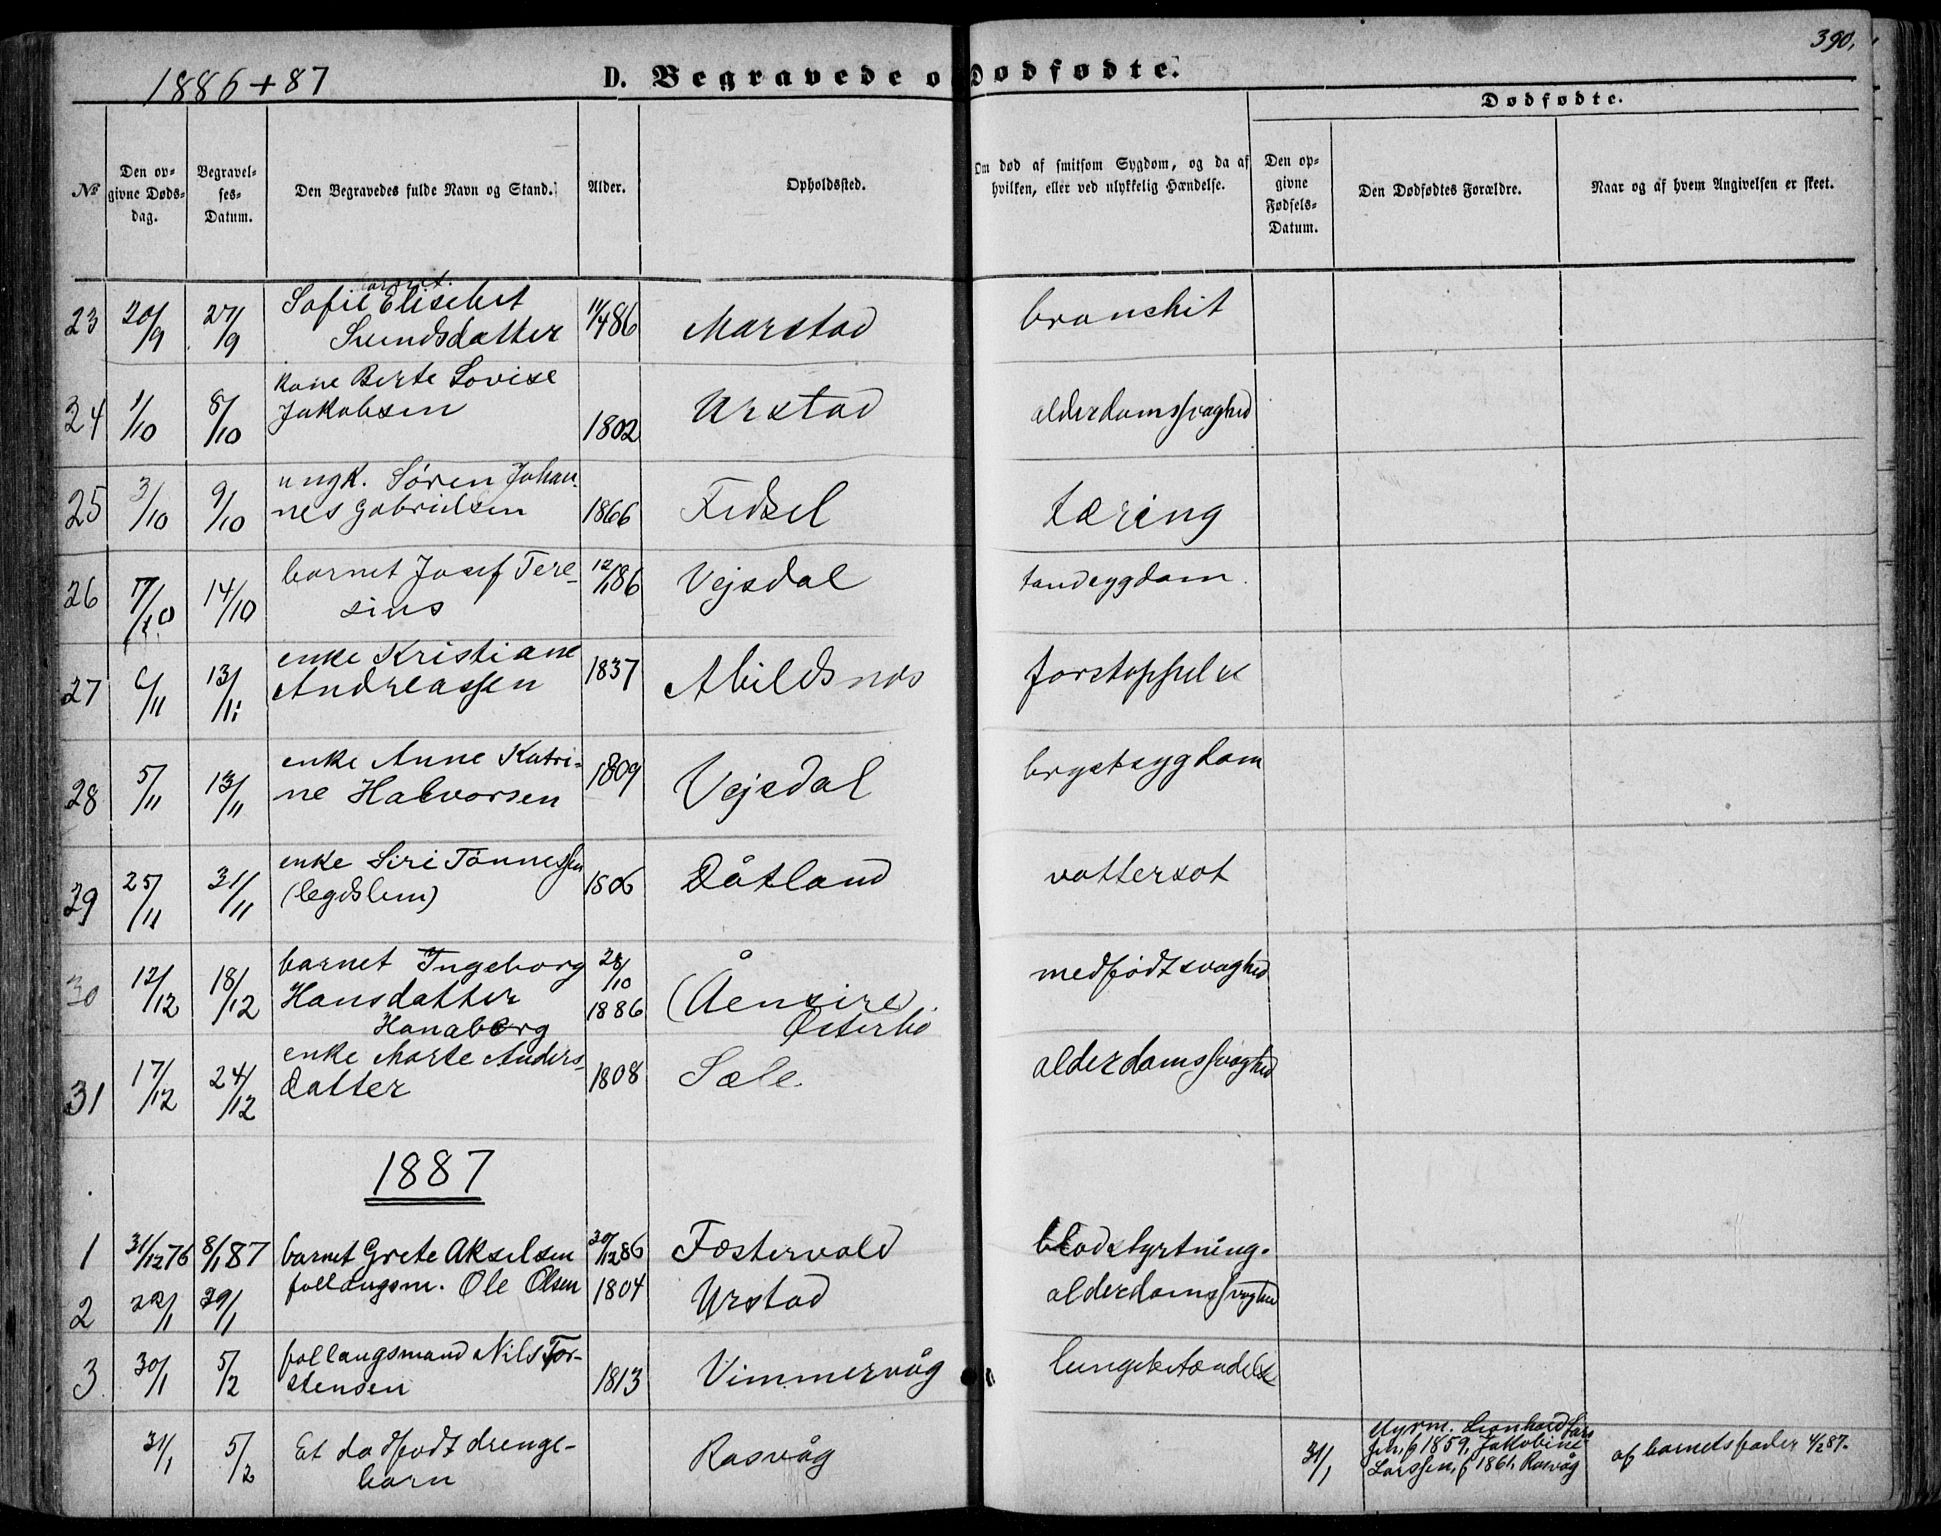 390,
1886+87
D. Begravede o Dødfødte.
Dødfødte.
No
Den op-
givne Døds-
dag.
Begravel-
ses-
Datum.
Den Begravedes fulde Navn og Stand.
Alder.
Opholdssted.
Om død af smitsom Sygdom, og da af
hvilken, eller ved ulykkelig Hændelse.
Den op-
givne
Fødsels-
Datum.
Den Dødfødtes Forældre.
Naar og af hvem Angivelsen er skeet.
barnet.
23 20/9 27/9 Sofie Elisebet 11/4 86 Marstad bronchit
Svendsdatter
kone Berte Lovise
24 1/10 8/10 Jakobsen 1802 Urstad alderdomssvaghed
ungk. Søren Johan-
25 3/10 9/10 nes Gabrielsen 1866 Fidsel tæring
26 7/10 14/10 barnet Josef Tere- 12/1 86 Vejsdal tandsygdom.
sius
enke Kristiane
27 6/11 13/11 Andreassen 1837 Abildsnes forstoppelse
28 5/11 13/11 enke Anne Katri- 1809 Vejsdal brystsygdom
ne Halvorsen
29 25/11 31/11 enke Siri Tønnessen 1806 Dåtland vattersot
(legdslem)
30 12/12 18/12 barnet Ingeborg 28/10 1886 (Åensire) medfødt svaghed
Hansdatter Østerbø
Hanaberg
31 17/12 24/12 enke Marte Anders- 1808 Sæle. alderdomssvaghed
datter
1887
1 31/12 76 8/1 87 barnet Grete Akselsen 30/12 86 Fostervold blodstyrtning.
2 22/1 29/1 follaugsm. Ole Olsen 1804 Urstad alderdomssvaghed
3 30/1 5/2 follaugsmand Nils Tor- 1813 Vimmervåg lungebetændelse
stensen
31/1 5/2 Et dødfødt drenge- Rasvåg 31/1
barn
Leonhard Lars
sen, f 1859, Jakobine
Larssen, f 1861, Rasvåg
af barnets fader 4/2 87.